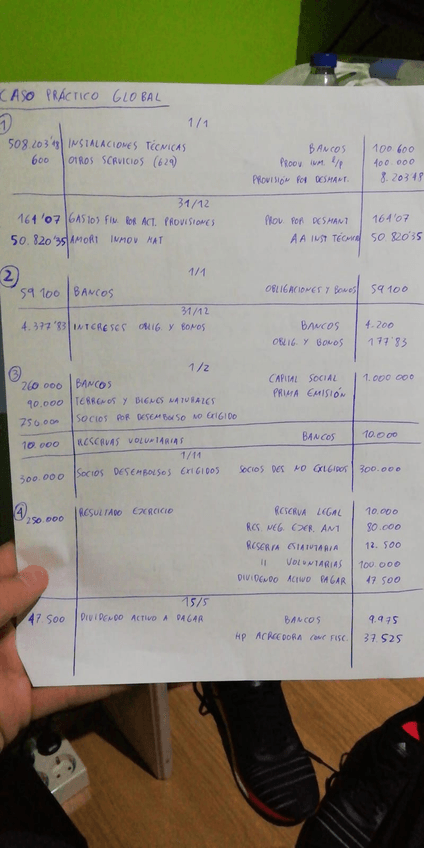 CASO PRÁCTICO GLOBAL
1 1/1
508.203'48 INSTALACIONES TÉCNICAS BANCOS 100.600
600 OTROS SERVICIOS (629) PROV. INM. L/P 400 000
PROVISIÓN POR DESMANT. 8.203'48
31/12
164'07 GASTOS FIN POR ACT. PROVISIONES PROV. POR DESMANT 164'07
50.820'35 AMORT INMOV MAT AA INST TÉCNICA 50.820'35
2 1/1
59 100 BANCOS OBLIGACIONES Y BONOS 59 100
31/12
4.377'83 INTERESES OBLIG Y BONOS BANCOS 4.200
OBLIG. Y BONOS 177'83
3 1/2
260.000 BANCOS CAPITAL SOCIAL 1.000 000
90.000 TERRENOS Y BIENES NATURALES PRIMA EMISIÓN
750.000 SOCIOS POR DESEMBOLSO NO EXIGIDO
10.000 RESERVAS VOLUNTARIAS BANCOS 10.000
1/11
300.000 SOCIOS DESEMBOLSOS EXIGIDOS SOCIOS DES NO EXIGIDOS 300.000
4 250.000 RESULTADO EJERCICIO RESERVA LEGAL 10.000
RES. NEG. EJER. ANT 80.000
RESERVA ESTATUTARIA 12.500
11 VOLUNTARIAS 100.000
DIVIDENDO ACTIVO PAGAR 47 500
15/5
47.500 DIVIDENDO ACTIVO A PAGAR BANCOS 9.975
HP ACREEDORA CONC FISC. 37.525